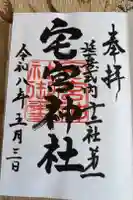 奉拝
延喜式内十二社第一
宅宮神社
令和八年五月三日